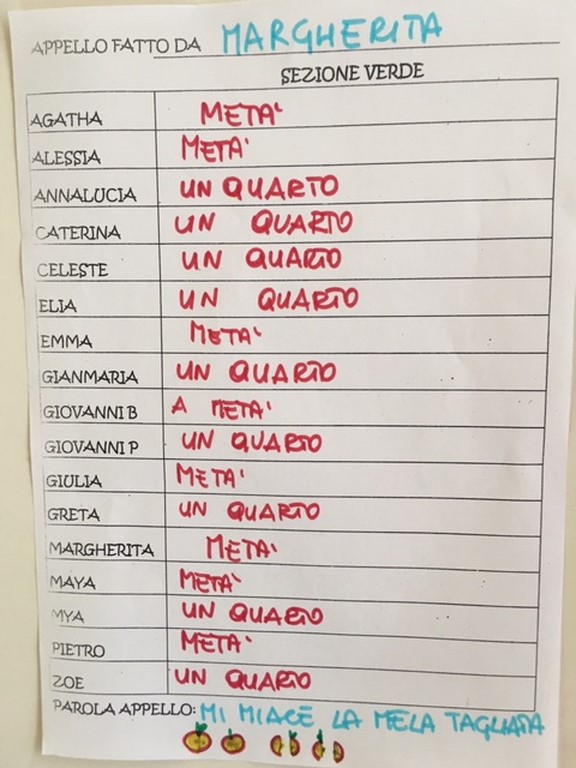 APPELLO FATTO DA MARGHERITA
SEZIONE VERDE
AGATHA METÀ
ALESSIA METÀ
ANNALUCIA UN QUARTO
CATERINA UN QUARTO
CELESTE UN QUARTO
ELIA UN QUARTO
EMMA METÀ
GIANMARIA UN QUARTO
GIOVANNI B A METÀ
GIOVANNI P UN QUARTO
GIULIA METÀ
GRETA UN QUARTO
MARGHERITA METÀ
MAYA METÀ
MYA UN QUARTO
PIETRO METÀ
ZOE UN QUARTO
PAROLA APPELLO: MI MIACE LA MELA TAGLIATA